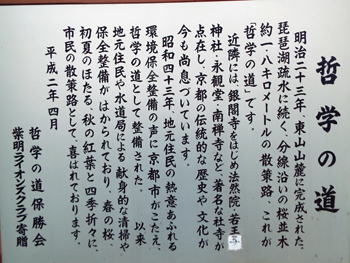 哲学の道
明治二十三年、東山山麓に完成された、
琵琶湖疏水に続く、分線沿いの桜並木
約一・八キロメートルの散策路、これが
「哲学の道」です。
近隣には、銀閣寺をはじめ法然院 若王子
神社・永観堂・南禅寺など、著名な社寺が
点在し、京都の伝統的な歴史や文化が
今も尚息づいています。
昭和四十三年、地元住民の熱意あふれる
環境保全整備の声に京都市がこたえ、
哲学の道として整備された。 以来
地元住民や水道局による献身的な清掃や
保全整備がはかられており、春の桜、
初夏のほたる、秋の紅葉と四季折々に、
市民の散策路として、喜ばれております。
平成二年四月
哲学の道保勝会
紫明ライオンズクラブ寄贈